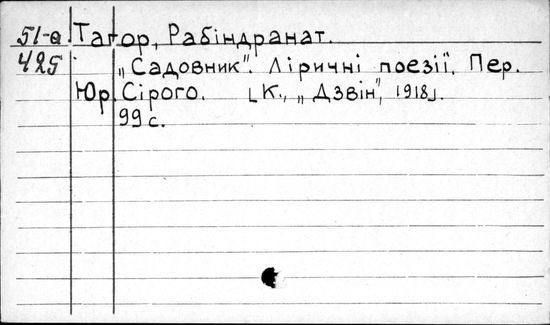 51-а Тагор, Рабіндранат.
425 „Садовник". Ліричні поезії. Пер.
Юр. Сірого. [К., „Дзвін", 1918].
99 с.